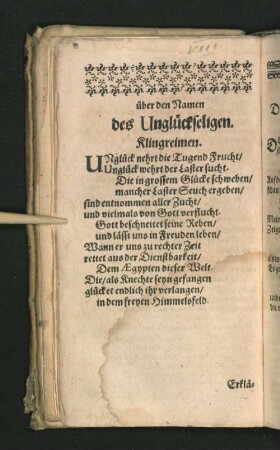 VIII
über den Namen
des Unglückseligen.
Klingreimen.
UNglück nehrt die Tugend Frucht/
Unglück wehrt der Laster sucht.
Die in grossem Glücke schweben/
mancher Laster Seuch ergeben/
sind entnommen aller Zucht/
und vielmals von Gott verflucht.
Gott beschneitet seine Reben/
und lässt uns in Freuden leben/
Wann er uns zu rechter Zeit
rettet aus der Dienstbarkeit/
Dem Ægypten dieser Welt.
Die/als Knechte seyn gefangen
glücket endlich ihr verlangen/
in dem freyen Himmelsfeld.
Erklä-